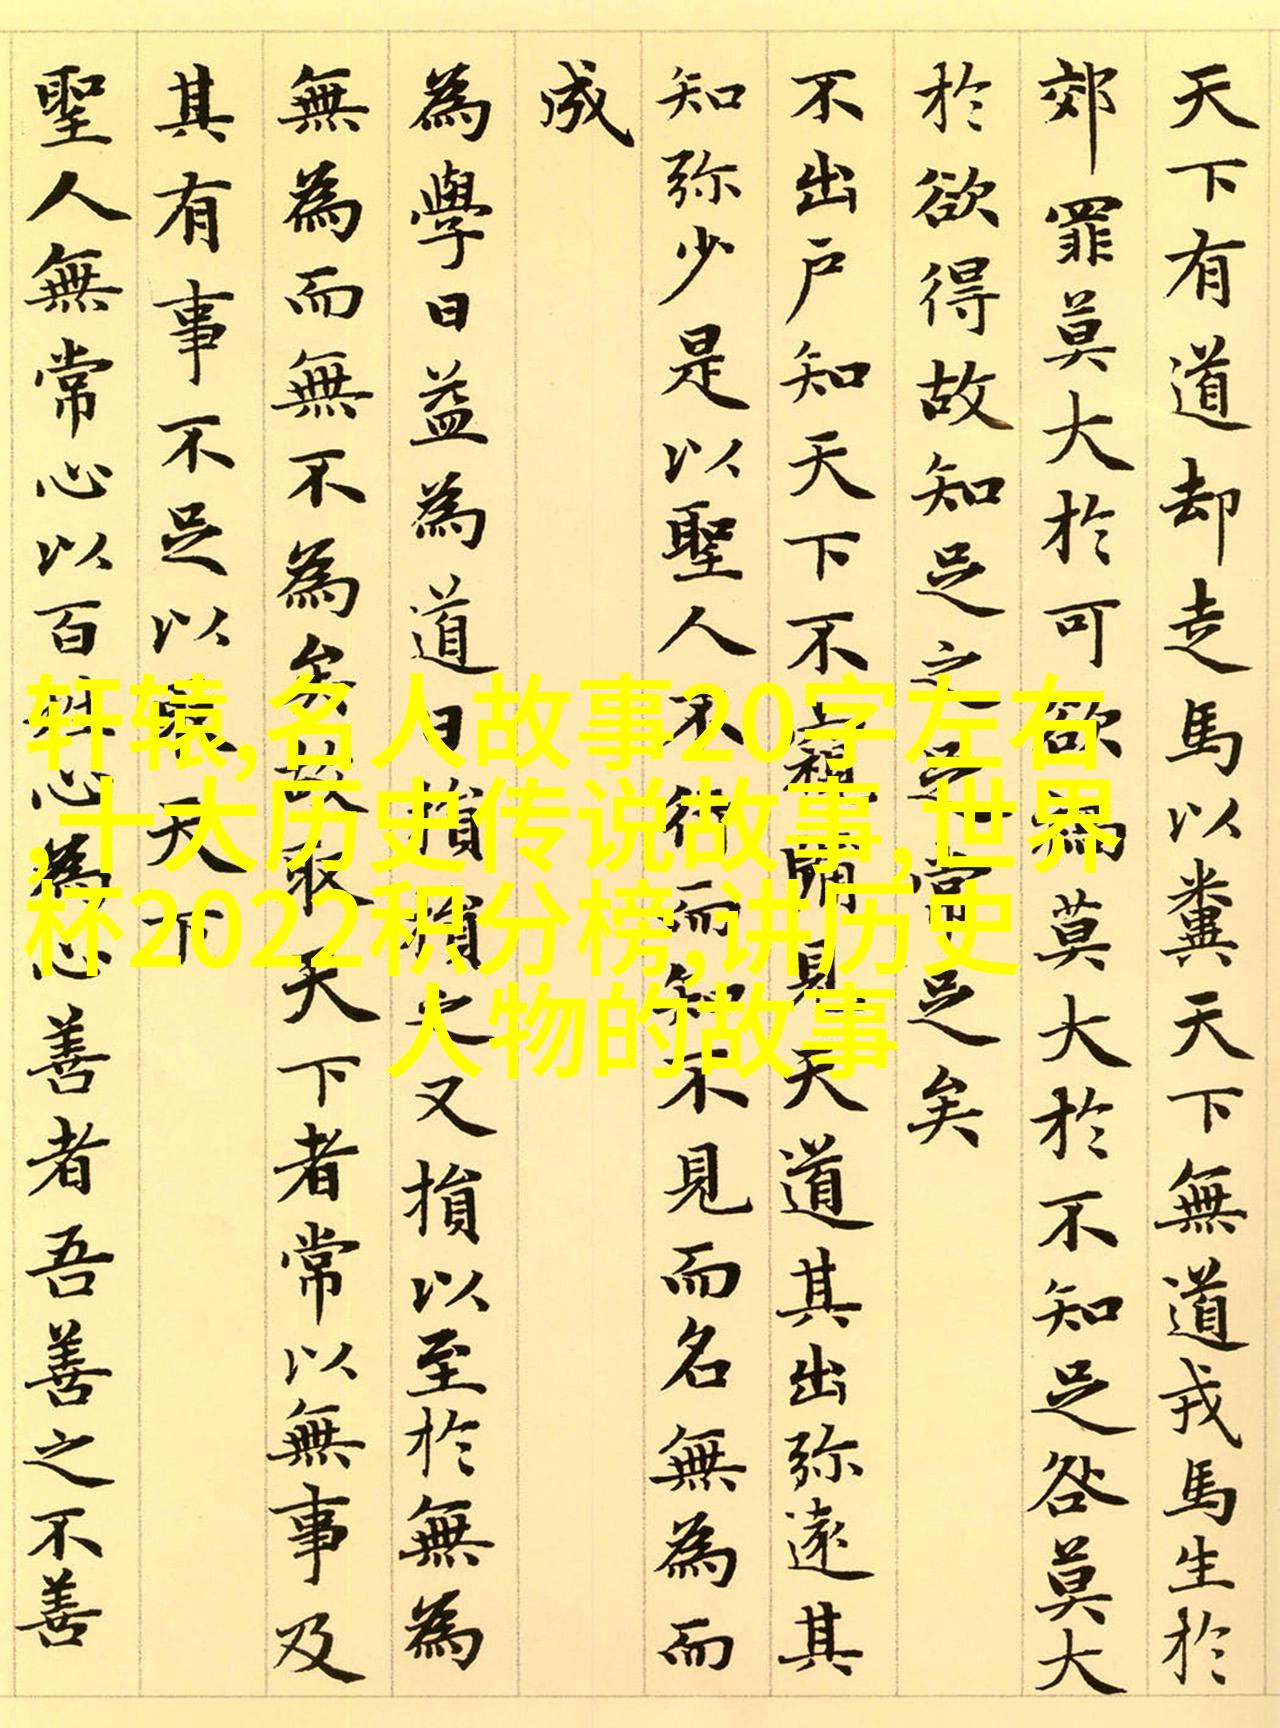 天下有道却走馬以糞天下無道戎馬生於
郊罪莫大於可欲禍莫大於不知足咎莫大
於欲得故知足之足常足矣
不出户知天下不窺牖見天道其出弥遠其
知弥少是以聖人不行而知不見而名無為而
成
為學日益為道日損損之又損以至於無為
無為而無不為矣故取天下者常以無事及
其有事不足以取天下
聖人無常心以百姓心為心善者吾善之不善
轩辕,名人故事20字左右
,十大历史传说故事,世界
杯2022积分榜,讲历史
人物的故事